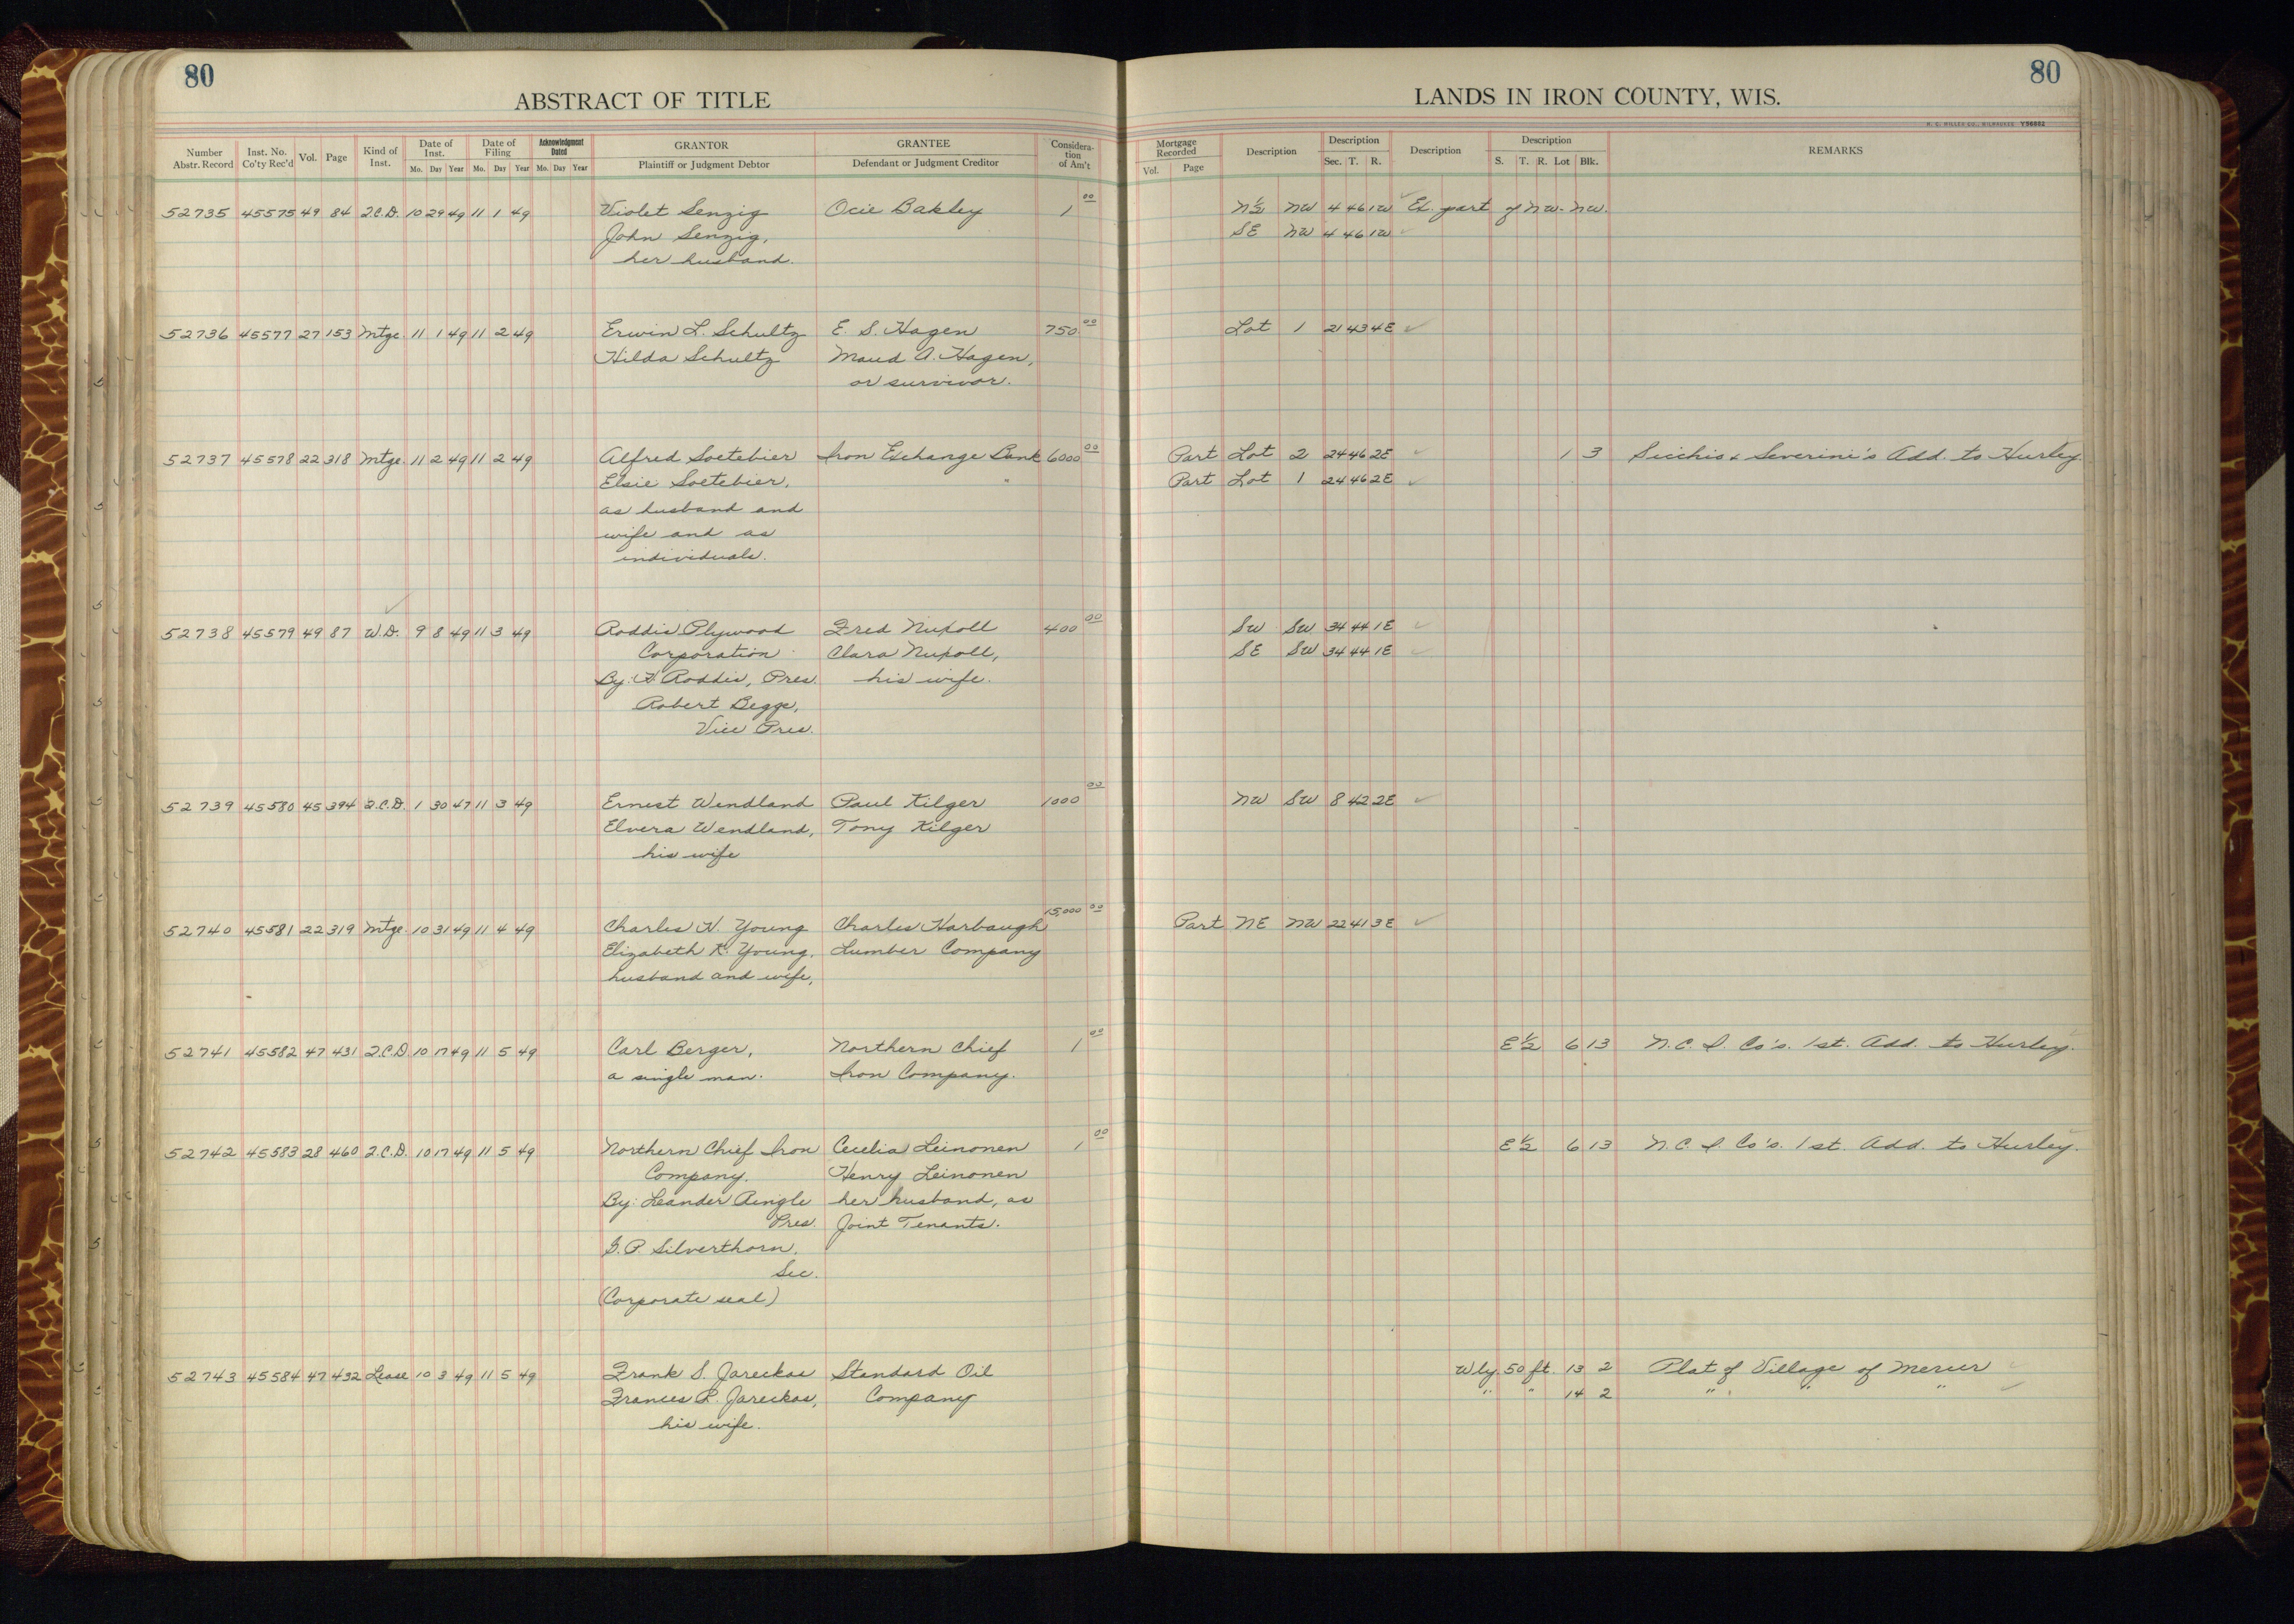 80
ABSTRACT OF TITLE
Number Abstr. Record Inst. No. Co'ty Rec'd Vol. Page Kind of Inst. Date of Inst. Mo. Day Year Date of Filing Mo. Day Year Acknowledgment Dated Mo. Day Year GRANTOR Plaintiff or Judgment Debtor GRANTEE Defendant or Judgment Creditor Considera-tion of Am't
52735 45575 49 84 Q.C.D. 10 29 49 11 1 49 Violet Senzig Ocie Bakley 1 00
John Senzig,
her husband.
52736 45577 27 153 Mtge 11 1 49 11 2 49 Erwin L. Schultz E. S. Hagen 750 00
Hilda Schultz Maud A. Hagen,
or survivor.
52737 45578 22 318 Mtge. 11 2 49 11 2 49 Alfred Soetebier Iron Exchange Bank 6000 00
Elsie Soetebier,
as husband and
wife and as
individuals.
52738 45579 49 87 W.D. 9 8 49 11 3 49 Roddis Plywood Fred Nupoll 400 00
Corporation Clara Nupoll,
By: H. Roddis, Pres. his wife.
Robert Begge,
Vice Pres.
52739 45580 45 394 Q.C.D. 1 30 47 11 3 49 Ernest Wendland Paul Kilger 1000 00
Elvera Wendland, Tony Kilger
his wife
52740 45581 22 319 Mtge. 10 31 49 11 4 49 Charles H. Young Charles Harbaugh 15,000 00
Elizabeth K. Young, Lumber Company
husband and wife,
52741 45582 47 431 Q.C.D. 10 17 49 11 5 49 Carl Berger, Northern Chief 1 00
a single man. Iron Company.
52742 45583 28 460 Q.C.D. 10 17 49 11 5 49 Northern Chief Iron Cecelia Leinonen 1 00
Company. Henry Leinonen
By: Leander Ringle her husband, as
Pres. Joint Tenants.
G.P. Silverthorn,
Sec.
(Corporate seal)
52743 45584 47 432 Lease 10 3 49 11 5 49 Frank S. Jareckas Standard Oil
Frances R. Jareckas, Company
his wife.
80
LANDS IN IRON COUNTY, WIS.
H. C. MILLER CO., MILWAUKEE Y96662
Mortgage Recorded Vol. Page Description Description Sec. T. R. Description Description S. T. R. Lot Blk. REMARKS
N½ NW 4 46 1W Ex. part of NW-NW.
SE NW 4 46 1W
Lot 1 21 43 4E
Part Lot 2 24 46 2E 1 3 Sicchis & Severini's Add. to Hurley
Part Lot 1 24 46 2E
SW SW 34 44 1E
SE SW 34 44 1E
NW SW 8 42 2E
Part NE NW 22 41 3E
E½ 6 13 N.C.I. Co's. 1st. Add. to Hurley.
E½ 6 13 N.C.I. Co's. 1st. Add. to Hurley.
Wly. 50 ft. 13 2 Plat of Village of Mercer
" " 14 2 " " "